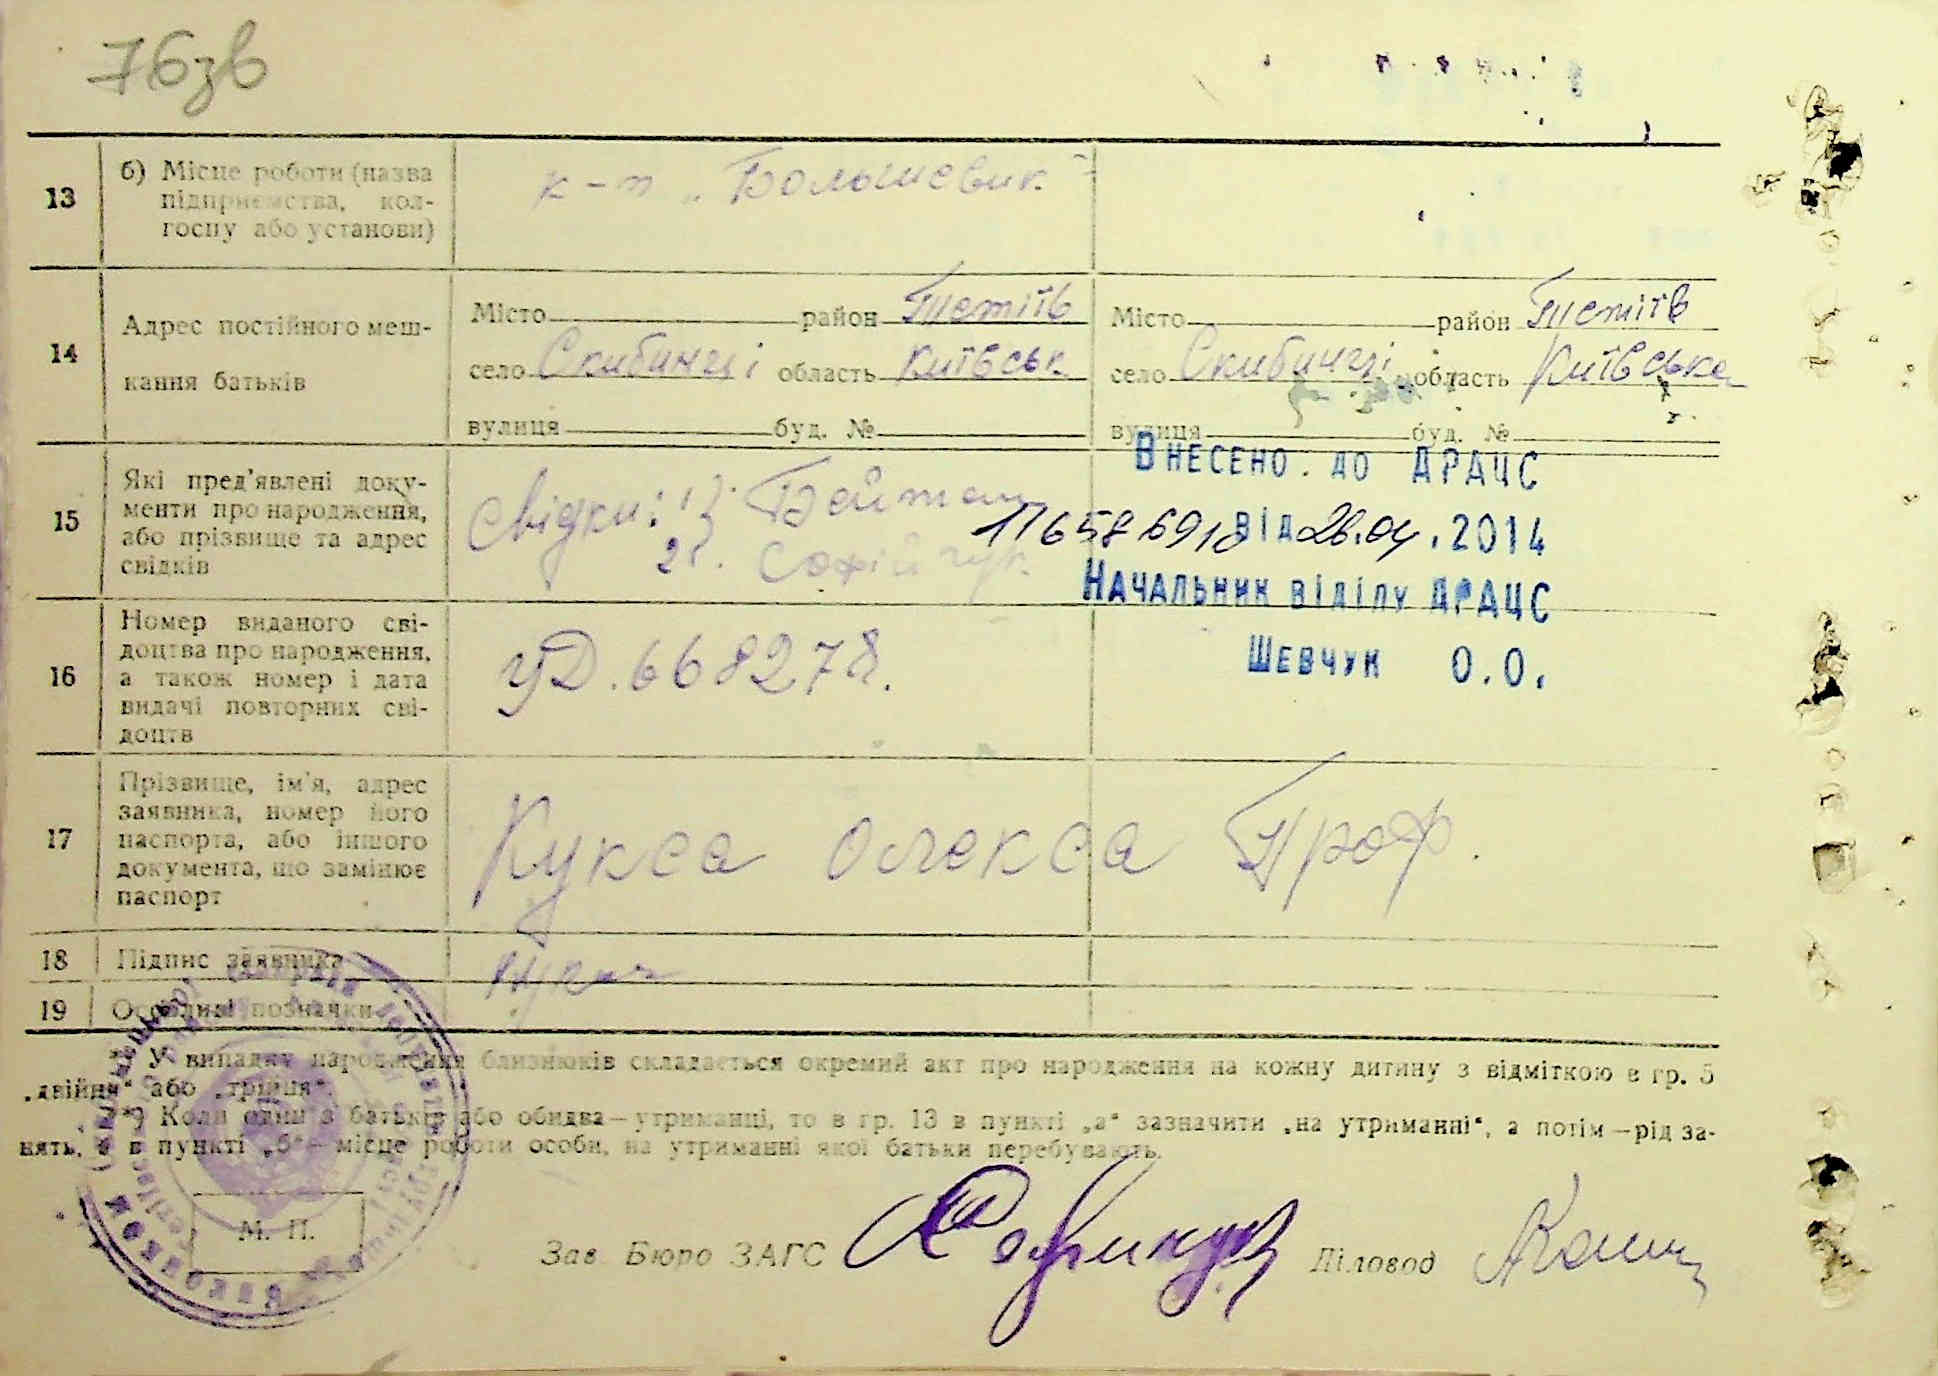 76зв
13 б) Місце роботи (назва підприємства, колгоспу або установи)
к-п „Большевик"
14 Адрес постійного мешкання батьків
Місто район Тетіїв Місто район Тетіїв
село Скибинці область Київськ село Скибинці область Київська
вулиця буд. № вулиця буд. №
15 Які пред'явлені документи про народження, або прізвище та адрес свідків
Свідки: 1)
2). Софійчук
Внесено. до ДРАЦС
від 28.04.2014
Начальник відділу ДРАЦС
Шевчук О.О.
16 Номер виданого свідоцтва про народження, а також номер і дата видачі повторних свідоцтв
УД. 668278.
17 Прізвище, ім'я, адрес заявника, номер його паспорта, або іншого документа, що замінює паспорт
Кукса Олекса Проф.
18 Підпис заявника
19 Особливі позначки
*) У випадку народження близнюків складається окремий акт про народження на кожну дитину з відміткою в гр. 5
„двійня" або „трійня".
**) Коли один з батьків або обидва—утриманці, то в гр. 13 в пункті „а" зазначити „на утриманні", а потім—рід за-
нять, а в пункті „б"—місце роботи особи, на утриманні якої батьки перебувають.
М. П.
Зав. Бюро ЗАГС Діловод